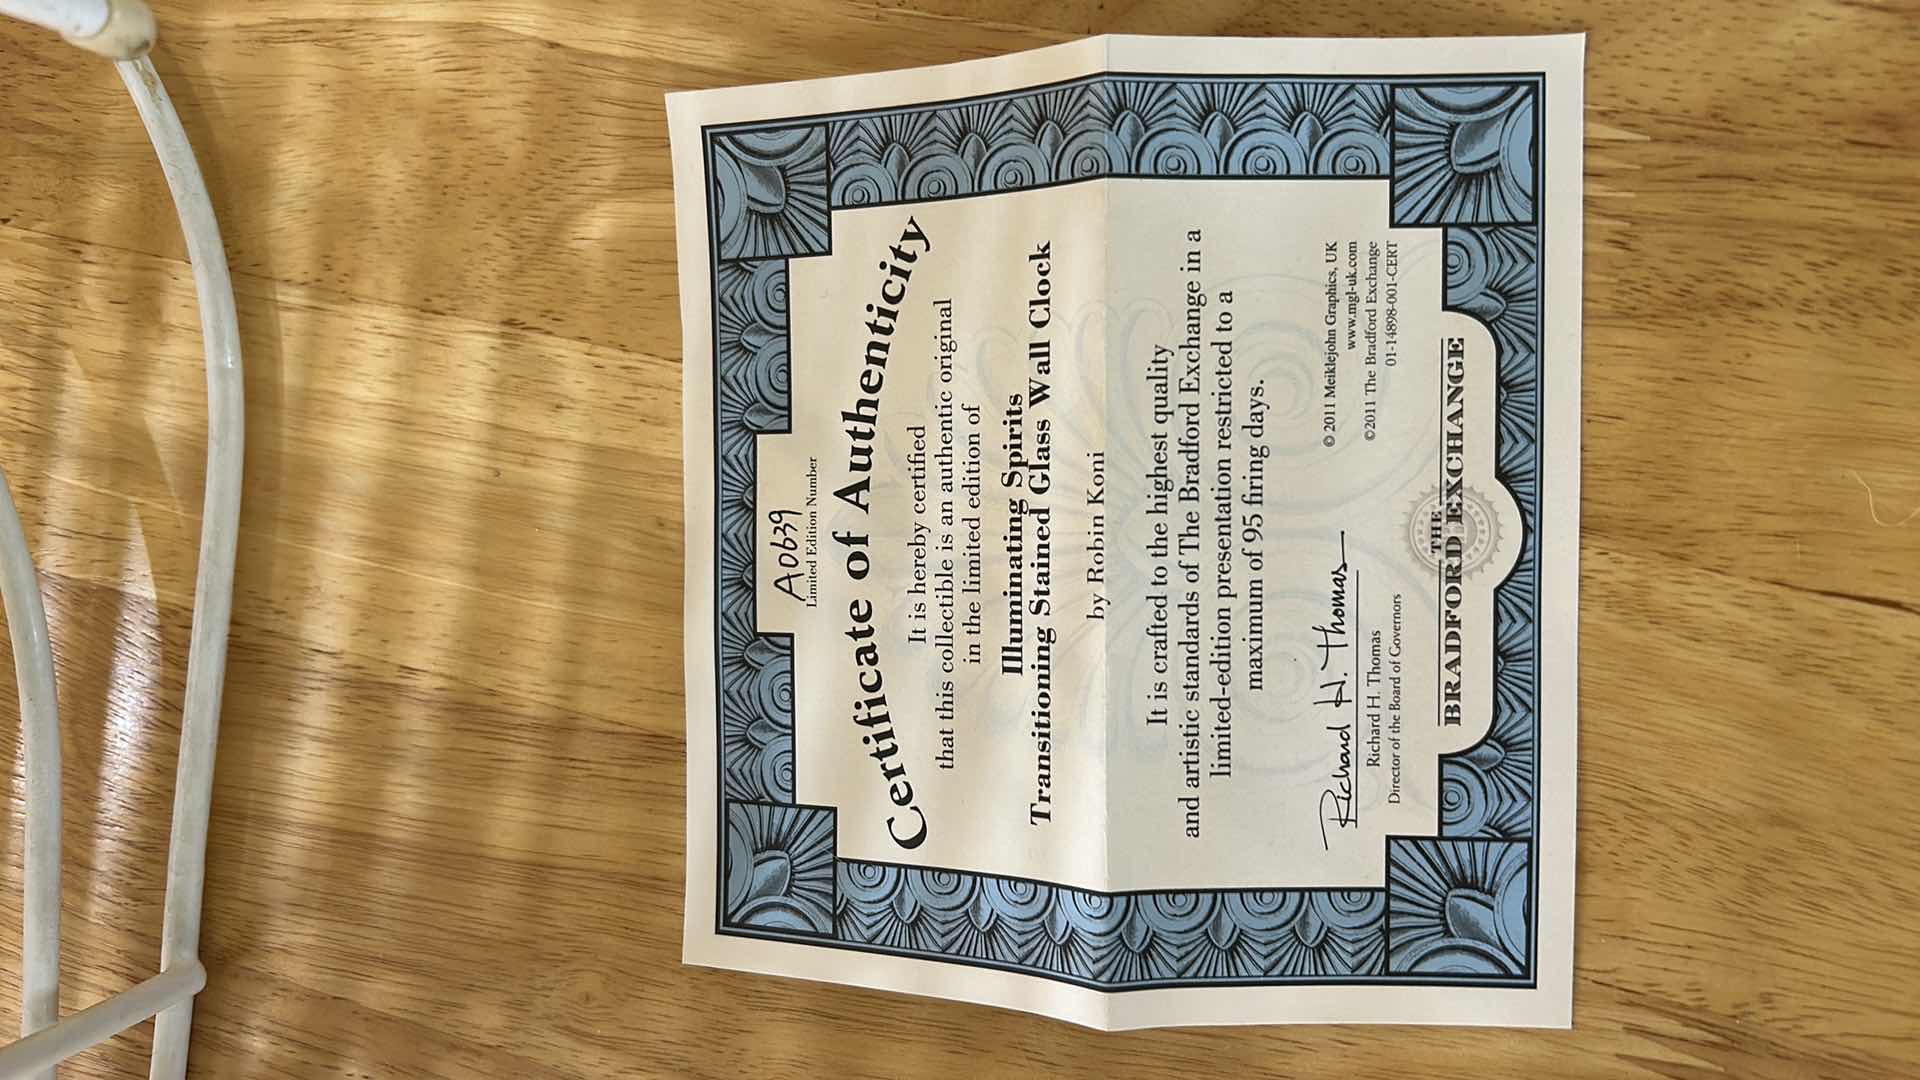 A0639
Limited Edition Number
Certificate of Authenticity
It is hereby certified
that this collectible is an authentic original
in the limited edition of
Illuminating Spirits
Transitioning Stained Glass Wall Clock
by Robin Koni
It is crafted to the highest quality
and artistic standards of The Bradford Exchange in a
limited-edition presentation restricted to a
maximum of 95 firing days.
Richard H. Thomas
Richard H. Thomas
Director of the Board of Governors
© 2011 Meiklejohn Graphics, UK
www.mgl-uk.com
©2011 The Bradford Exchange
01-14898-001-CERT
THE
BRADFORD EXCHANGE